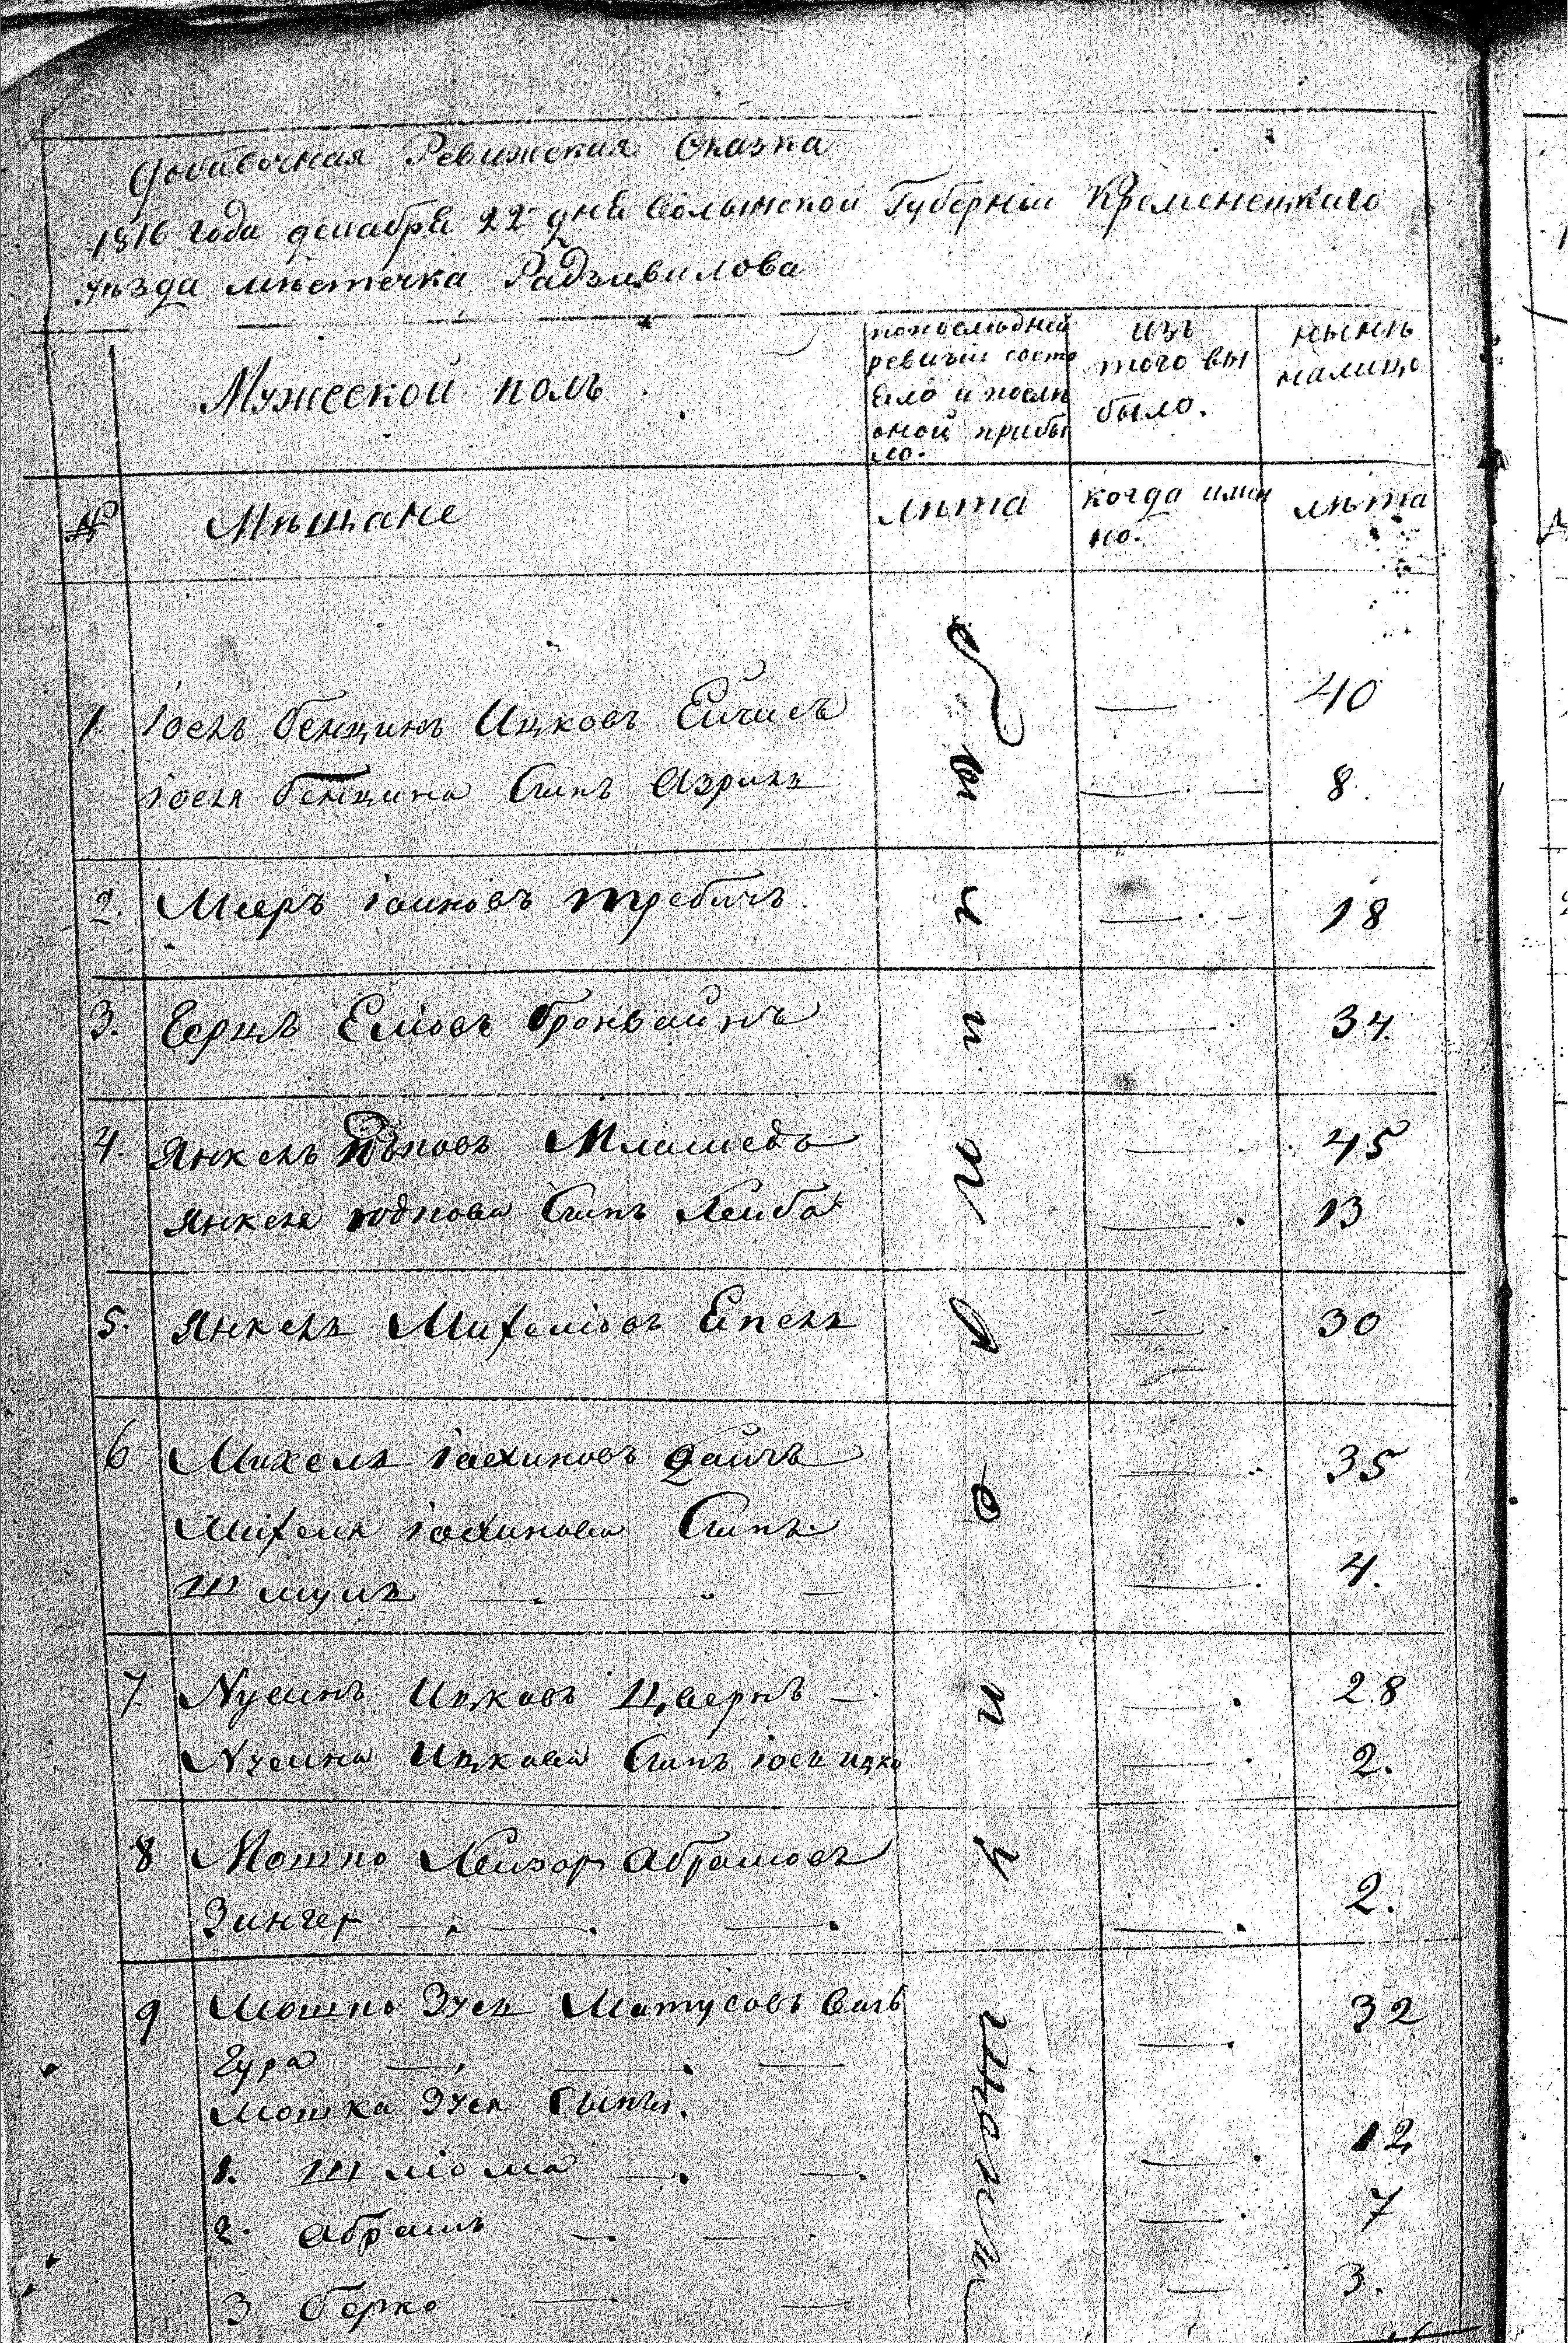 Добавочная Ревижская Сказка
1816 года декабря 22 дня Волынской Губерніи Кременецкаго
уѣзда мѣстечка Радзивилова
Мужеской полъ
попослѣдней
ревизіи состо
яло и послѣ
оной прибы
ло.
изъ
того вы
было.
нынѣ
налицо
№ Мѣщане
лѣта
когда имен
но.
лѣта
1. Іосль Бенцинъ Ицковъ — 40
Іосля Бенцина Сынъ Азриль — 8.
2. Мееръ требичъ — 18
3. Герцъ Еліовъ — 34.
4. Янкель Мламедъ — 45
Янкеля юдкова Сынъ Лейба — 13
5. Янкель Михеліовъ Епель — 30
6 Михель Іохиновъ — 35
Михеля Іохинова Сынъ
Шмуль — 4.
7. Nусинъ Ицковъ Цвернъ — 28
Nусина Ицкова Сынъ Іось ицко — 2.
8 Мошко Лейзоръ Абрамовъ
Зингер — 2.
9 Мошко Зусь Матусовъ Валь
— 32
Мошка Зуся Сыны.
1. Шліома — 12
2. Абрамъ — 7
3 Берко — 3.